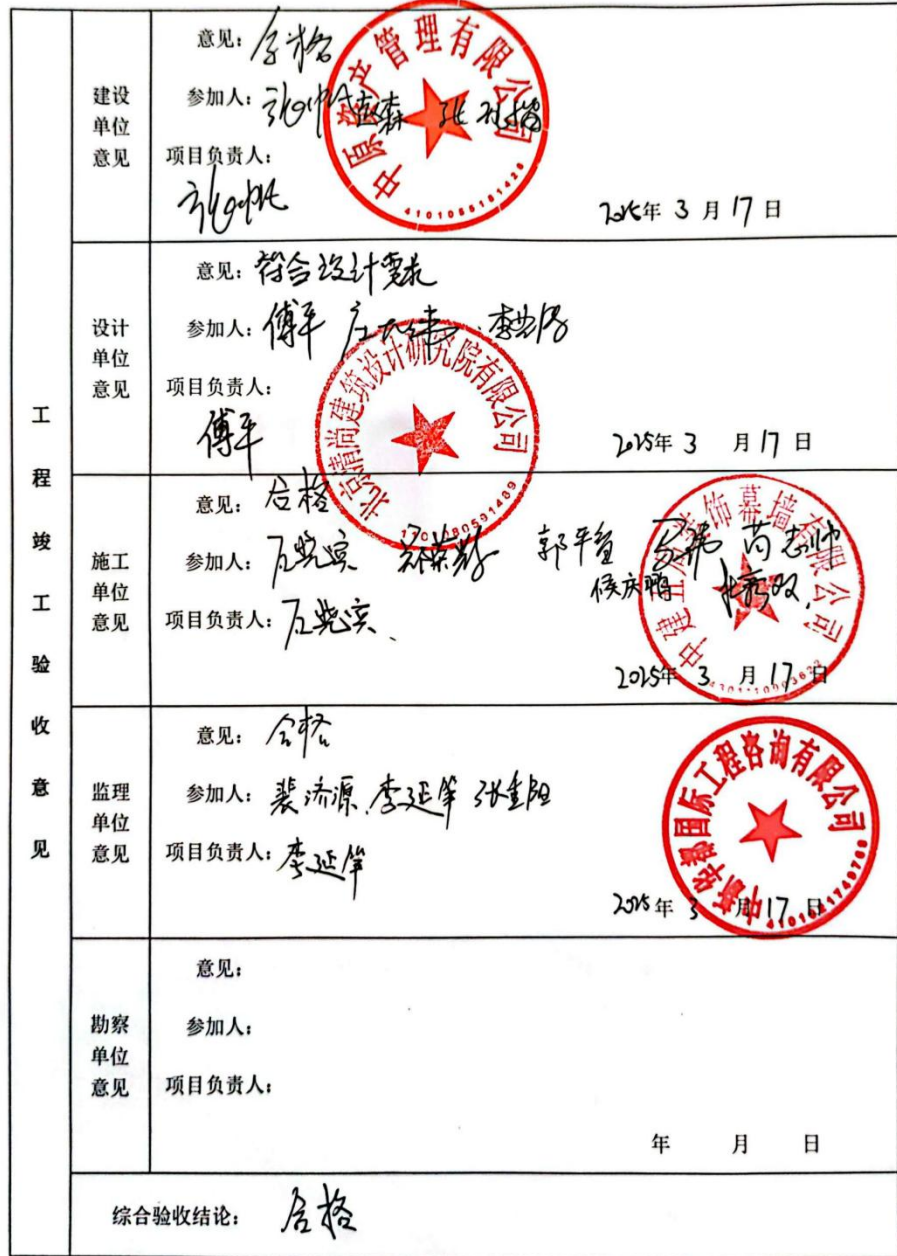 工程竣工验收意见
建设单位意见
意见：合格
参加人：
项目负责人：
2025年 3 月 17 日
中原资产管理有限公司
设计单位意见
意见：符合设计要求
参加人：傅平
项目负责人：
傅平
2025年 3 月 17 日
北京清尚建筑设计研究院有限公司
施工单位意见
意见：合格
参加人：
侯庆鹏
项目负责人：
2025年 3 月 17 日
装饰幕墙有限公司
监理单位意见
意见：合格
参加人：裴济源
项目负责人：
2025年 3 月 17 日
国际工程咨询有限公司
勘察单位意见
意见：
参加人：
项目负责人：
年 月 日
综合验收结论：合格